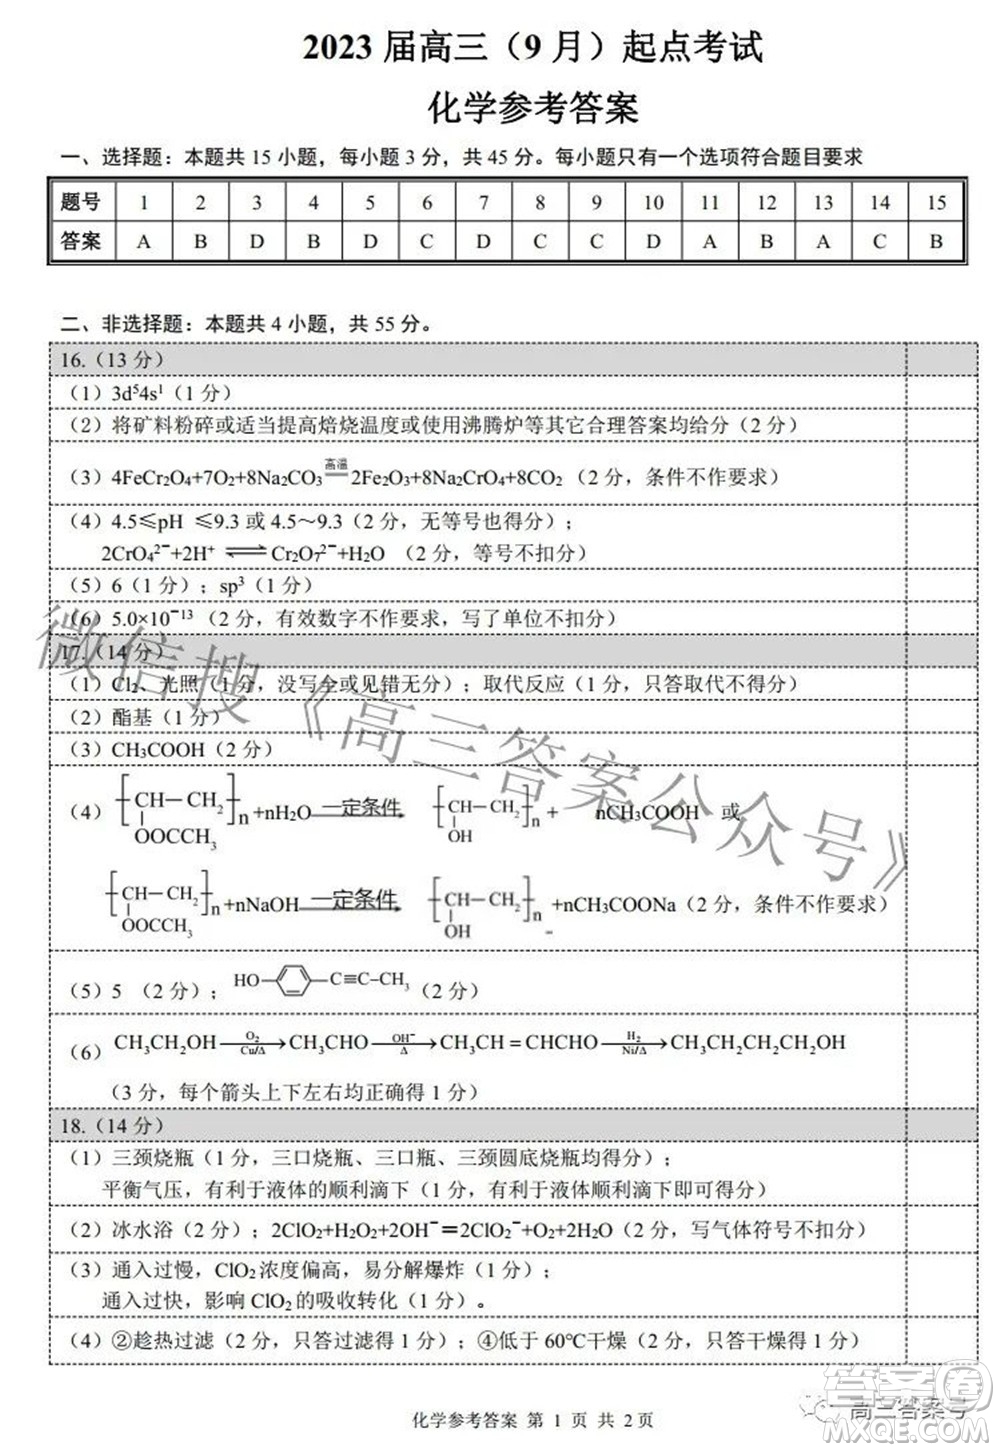 2023 届高三（9 月）起点考试
化学参考答案
一、选择题：本题共 15 小题，每小题 3 分，共 45 分。每小题只有一个选项符合题目要求
题号 1 2 3 4 5 6 7 8 9 10 11 12 13 14 15
答案 A B D B D C D C C D A B A C B
二、非选择题：本题共 4 小题，共 55 分。
16.（13 分）
（1）3d⁵4s¹（1 分）
（2）将矿料粉碎或适当提高焙烧温度或使用沸腾炉等其它合理答案均给分（2 分）
（3）4FeCr₂O₄+7O₂+8Na₂CO₃ 高温 2Fe₂O₃+8Na₂CrO₄+8CO₂（2 分，条件不作要求）
（4）4.5≤pH ≤9.3 或 4.5～9.3（2 分，无等号也得分）；
2CrO₄²⁻+2H⁺ ⇌ Cr₂O₇²⁻+H₂O （2 分，等号不扣分）
（5）6（1 分）；sp³（1 分）
（6）5.0×10⁻¹³（2 分，有效数字不作要求，写了单位不扣分）
17.（14 分）
（1）Cl₂、光照（1 分，没写全或见错无分）；取代反应（1 分，只答取代不得分）
（2）酯基（1 分）
（3）CH₃COOH（2 分）
（4）[CH－CH₂]n OOCCH₃ +nH₂O 一定条件 [CH－CH₂]n OH + nCH₃COOH 或
[CH－CH₂]n OOCCH₃ +nNaOH 一定条件 [CH－CH₂]n OH +nCH₃COONa（2 分，条件不作要求）
（5）5 （2 分）；HO－C≡C－CH₃（2 分）
（6）CH₃CH₂OH O₂ Cu/Δ → CH₃CHO OH⁻ Δ → CH₃CH＝CHCHO H₂ Ni/Δ → CH₃CH₂CH₂CH₂OH
（3 分，每个箭头上下左右均正确得 1 分）
18.（14 分）
（1）三颈烧瓶（1 分，三口烧瓶、三口瓶、三颈圆底烧瓶均得分）；
平衡气压，有利于液体的顺利滴下（1 分，有利于液体顺利滴下即可得分）
（2）冰水浴（2 分）；2ClO₂+H₂O₂+2OH⁻＝2ClO₂⁻+O₂+2H₂O（2 分，写气体符号不扣分）
（3）通入过慢，ClO₂ 浓度偏高，易分解爆炸（1 分）；
通入过快，影响 ClO₂ 的吸收转化（1 分）。
（4）②趁热过滤（2 分，只答过滤得 1 分）；④低于 60℃干燥（2 分，只答干燥得 1 分）
化学参考答案 第 1 页 共 2 页
微信搜《高三答案公众号》
高三答案号
答案圈
MXQE.COM